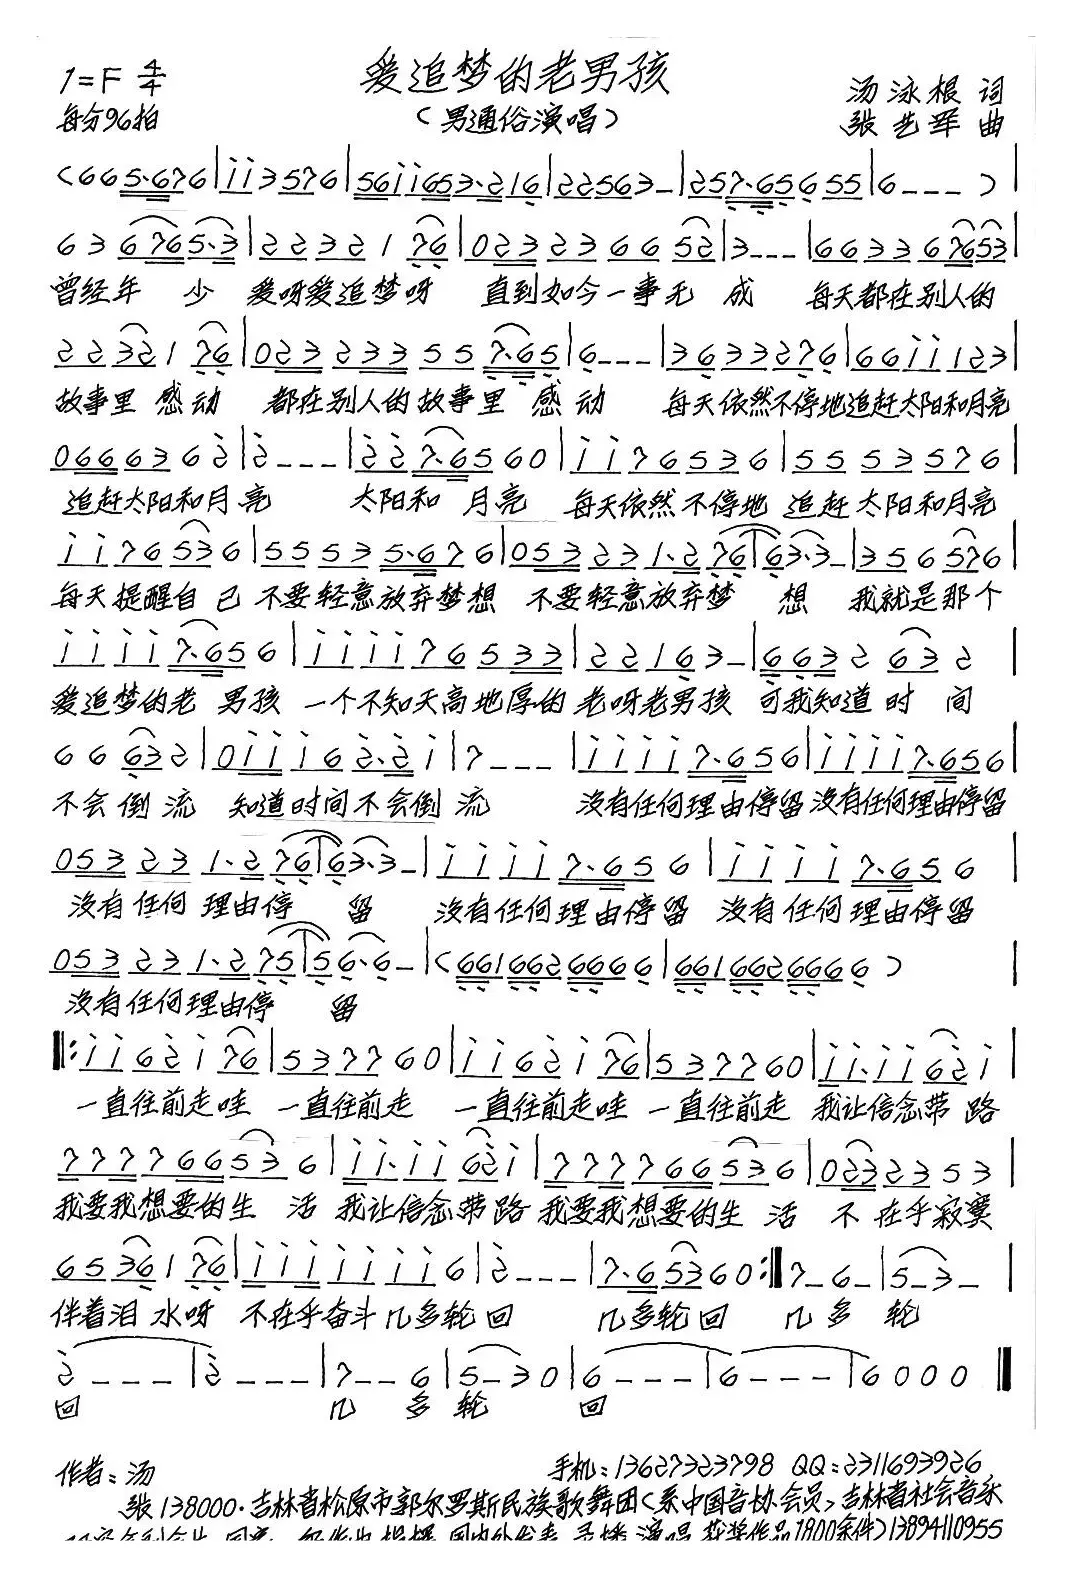 爱追梦的老男孩
1=F 4/4
汤泳根 词
每分96拍
(男通俗演唱)
张艺军 曲
(665·676|1135 76|561 1653·216|22563-|257·65655|6---)
63 6765·3|2232176|0232366 52|3---|663367653|
曾经年少 爱呀爱追梦呀 直到如今一事无成 每天都在别人的
2232176|02323355 7·65|6---|36332 76|66 1 1 123|
故事里感动 都在别人的故事里感动 每天依然不停地追赶太阳和月亮
0666362|2---|227·6560|11765 36|55535 76|
追赶太阳和月亮 太阳和月亮 每天依然不停地 追赶太阳和月亮
1176536|55535·676|053231·276|63·3-|356576|
每天提醒自己 不要轻意放弃梦想 不要轻意放弃梦想 我就是那个
11117·656|1111765 33|22163-|6632632|
爱追梦的老男孩 一个不知天高地厚的 老呀老男孩 可我知道时间
66632|011162·21|7---|11117·656|11117·656|
不会倒流 知道时间不会倒流 没有任何理由停留没有任何理由停留
053231·276|63·3-|11117·656|11117·656|
没有任何理由停留 没有任何理由停留 没有任何理由停留
053231·275|56·6-|(6616626666|6616626666)|
没有任何理由停留
‖:1162176|5377 60|1162176|5377 60|11·11621|
一直往前走哇 一直往前走 一直往前走哇 一直往前走 我让信念带路
7777665 36|11·11621|7777665 36|0232353|
我要我想要的生活 我让信念带路 我要我想要的生活 不在乎寂寞
6536176|11111116|2---|7·65360:‖7-6-|5-3-|
伴着泪水呀 不在乎奋斗几多轮回 几多轮回 几多轮
2---|2---|7--6|5-30|6---|6---|6000‖
回 几多轮回
作者:汤 手机:13627323798 QQ:2311693926
张138000·吉林省松原市郭尔罗斯民族歌舞团(系中国音协会员)吉林省社会音乐
获奖作品1800余件)13894110955